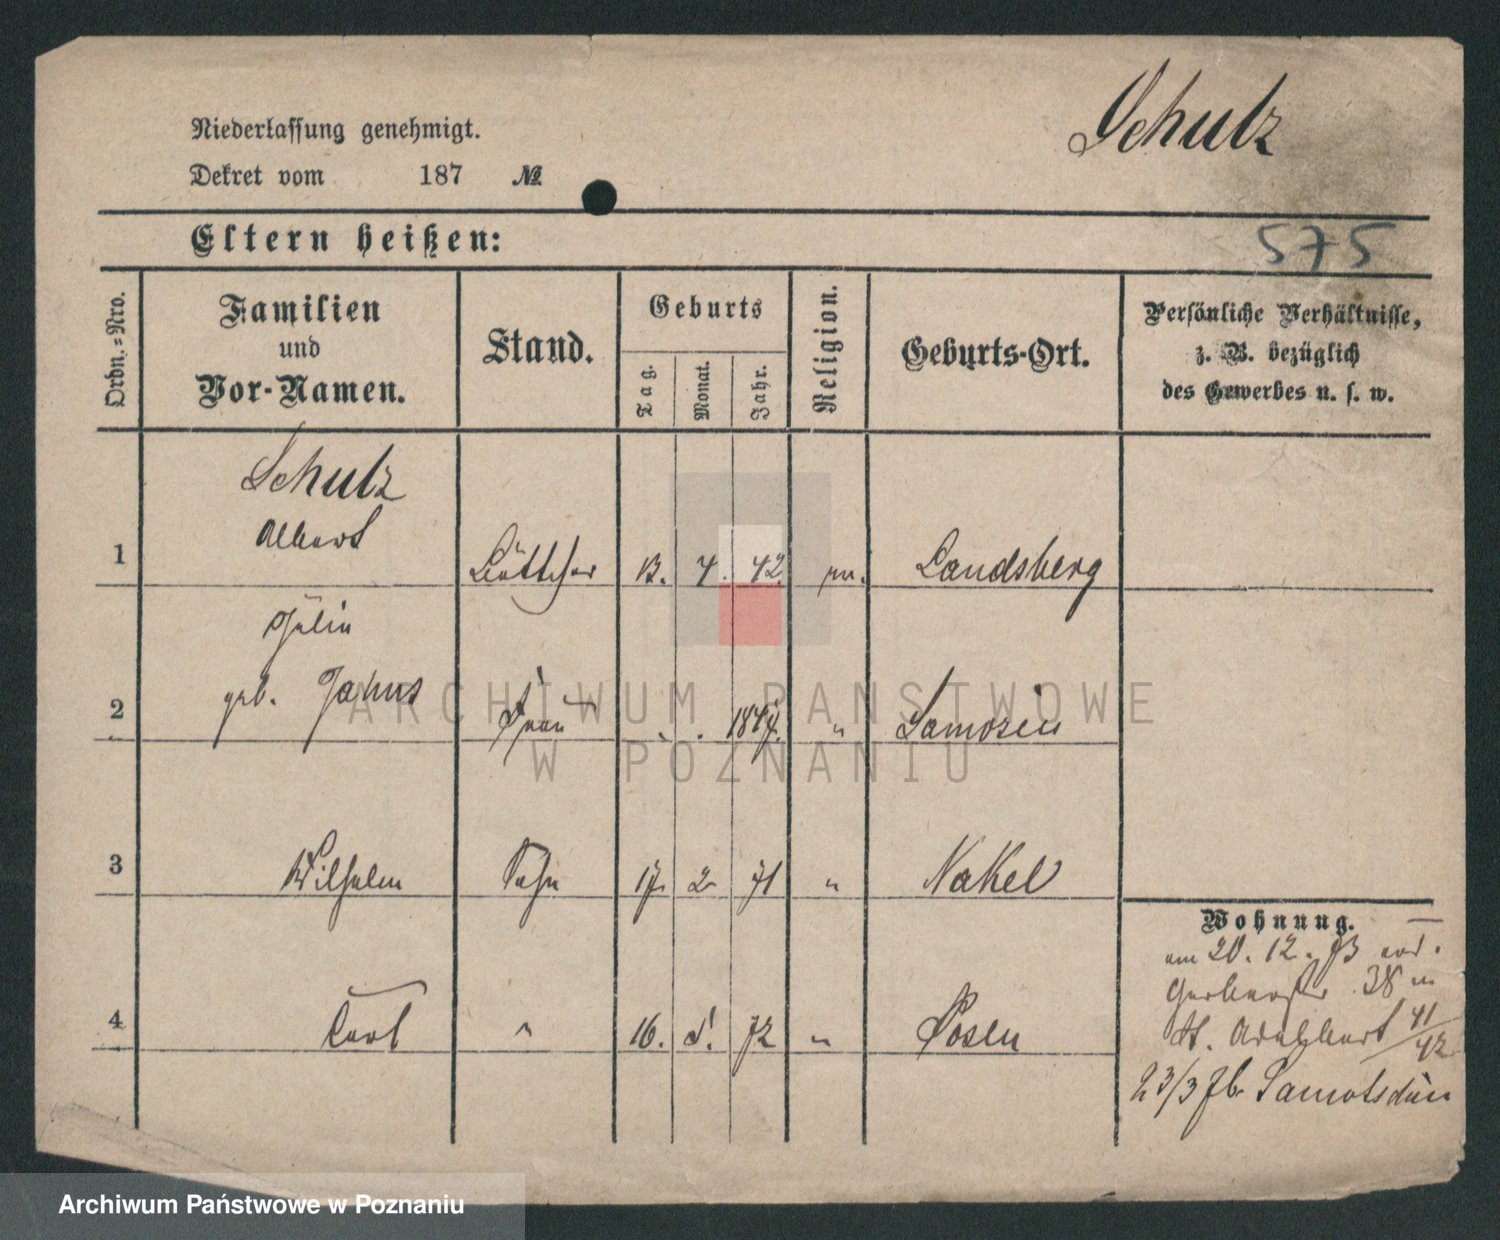 Schulz
Niederlassung genehmigt.
Dekret vom 187 №
Eltern heißen:
575
Ordn.=Nro.
Familien
und
Vor-Namen.
Stand.
Geburts
Tag.
Monat.
Jahr.
Religion.
Geburts-Ort.
Persönliche Verhältnisse,
z. B. bezüglich
des Gewerbes u. s. w.
Schulz
Albert
1 Böttcher 13. 4. 42 Landsberg
geb. Jahns
2 Frau 1847. " Samoşin
3 Wilhelm Sohn 17. 2 71 " Nakel
4 Carl " 16. 72 " Posen
Wohnung.
am 20. 12. 73
Gerberstr 38
St. Adalbert 41/42
23/3 Samotschin
ARCHIWUM PAŃSTWOWE
W POZNANIU
Archiwum Państwowe w Poznaniu